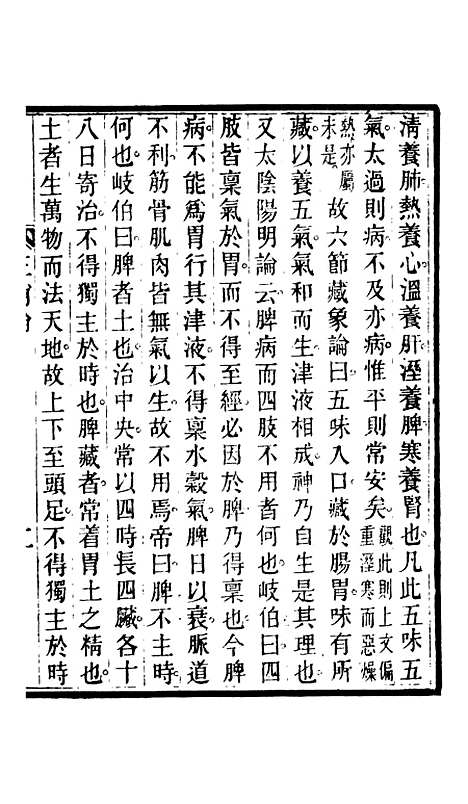 清養肺熱養心溫養肝溼養脾寒養腎也凡此五味五
氣太過則病不及亦病惟平則常安矣觀此則上文偏重溼寒而惡燥
熱亦屬未是故六節藏象論曰五味入口藏於腸胃味有所
藏以養五氣氣和而生津液相成神乃自生是其理也
又太陰陽明論云脾病而四肢不用者何也岐伯曰四
肢皆稟氣於胃而不得至經必因於脾乃得稟也今脾
病不能爲胃行其津液不得稟水穀氣脾日以衰脈道
不利筋骨肌肉皆無氣以生故不用焉帝曰脾不主時
何也岐伯曰脾者土也治中央常以四時長四臟各十
八日寄治不得獨主於時也脾藏者常着胃土之精也
土者生萬物而法天地故上下至頭足不得獨主於時